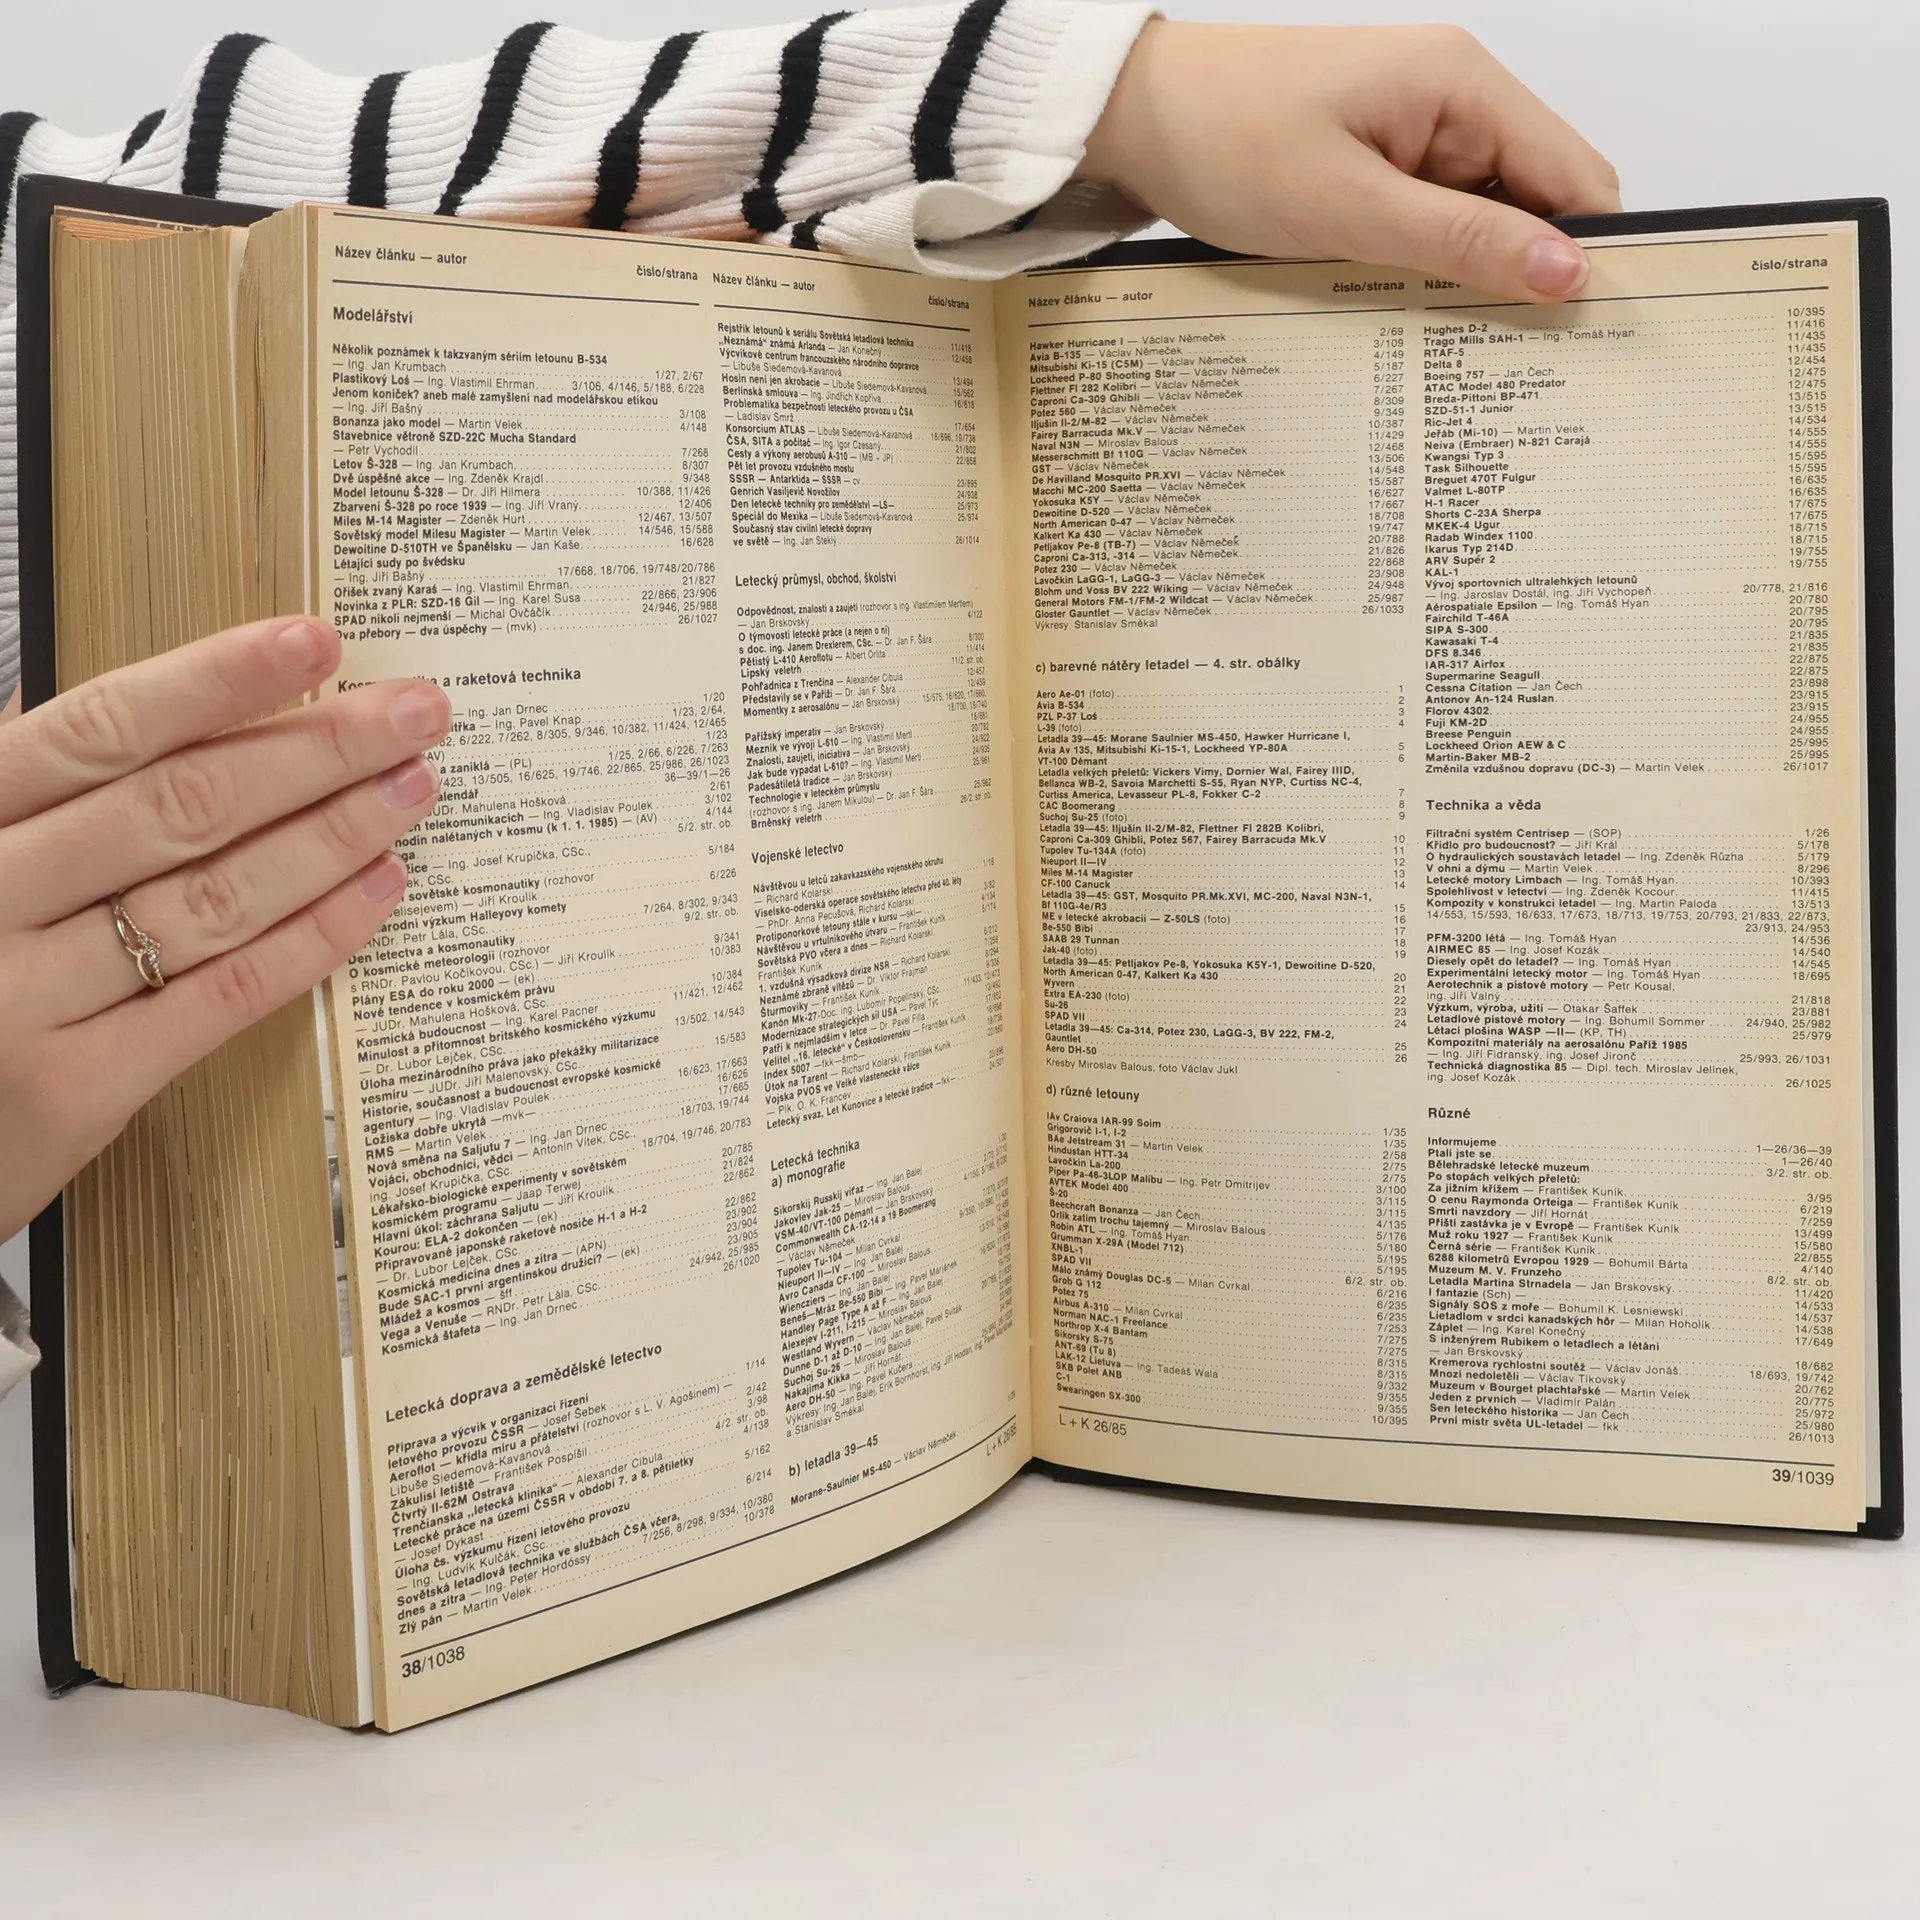 Název článku — autor
číslo/strana
Modelářství
Několik poznámek k takzvaným sériím letounu B-534
— Ing. Jan Krumbach 1/27, 2/67
Plastikový Loš — Ing. Vlastimil Ehrman 3/106, 4/146, 5/188, 6/228
Jenom koníček? aneb malé zamyšlení nad modelářskou etikou
— Ing. Jiří Bašný 3/108
Bonanza jako model — Martin Velek 4/148
Stavebnice větroně SZD-22C Mucha Standard
— Petr Vychodil 7/268
Letov Š-328 — Ing. Jan Krumbach 8/307
Dvě úspěšné akce — Ing. Zdeněk Krajdl 9/348
Model letounu Š-328 — Dr. Jiří Hilmera 10/388, 11/426
Zbarvení Š-328 po roce 1939 — Ing. Jiří Vraný 12/406
Miles M-14 Magister — Zdeněk Hurt 12/467, 13/507
Sovětský model Milesu Magister — Martin Velek 14/546, 15/588
Dewoitine D-510TH ve Španělsku — Jan Kaše 16/628
Létající sudy po švédsku
— Ing. Jiří Bašný 17/668, 18/706, 19/748/20/786
Oříšek zvaný Karaš — Ing. Vlastimil Ehrman 21/827
Novinka z PLR: SZD-16 Gil — Ing. Karel Susa 22/866, 23/906
SPAD nikoli nejmenší — Michal Ovčáčík 24/946, 25/988
Dva přebory — dva úspěchy — (mvk) 26/1027
a raketová technika
1/20
— Ing. Jan Drnec
— Ing. Pavel Knap 1/23, 2/64,
6/222, 7/262, 8/305, 9/346, 10/382, 11/424, 12/465
(AV) 1/23
a zaniklá — (PL) 1/25, 2/66, 6/226, 7/263
13/505, 16/625, 19/746, 22/865, 25/986, 26/1023
36—39/1—26
JUDr. Mahulena Hošková 2/61
telekomunikacích — Ing. Vladislav Poulek 3/102
hodin nalétaných v kosmu (k 1. 1. 1985) — (AV) 4/144
5/2. str. ob.
— Ing. Josef Krupička, CSc., 5/184
sovětské kosmonautiky (rozhovor
— Jiří Kroulík 6/226
výzkum Halleyovy komety
RNDr. Petr Lála, CSc. 7/264, 8/302, 9/343
Den letectva a kosmonautiky 9/2. str. ob.
O kosmické meteorologii (rozhovor
s RNDr. Pavlou Kočíkovou, CSc.) — Jiří Kroulík 9/341
Plány ESA do roku 2000 — (ek) 10/383
Nové tendence v kosmickém právu
— JUDr. Mahulena Hošková, CSc. 10/384
Kosmická budoucnost — Ing. Karel Pacner 11/421, 12/462
Minulost a přítomnost britského kosmického výzkumu
— Dr. Lubor Lejček, CSc. 13/502, 14/543
Úloha mezinárodního práva jako překážky militarizace
vesmíru — JUDr. Jiří Malenovský, CSc. 15/583
Historie, současnost a budoucnost evropské kosmické
agentury — Ing. Vladislav Poulek 16/623, 17/663
Ložiska dobře ukrytá —mvk— 16/626
RMS — Martin Velek 17/665
Nová směna na Saljutu 7 — Ing. Jan Drnec 18/703, 19/744
Vojáci, obchodníci, vědci — Antonín Vítek, CSc.,
ing. Josef Krupička, CSc. 18/704, 19/746, 20/783
Lékařsko-biologické experimenty v sovětském
kosmickém programu — Jaap Terwej 20/785
Hlavní úkol: záchrana Saljutu — Jiří Kroulík 21/824
Kourou: ELA-2 dokončen — (ek) 22/862
Připravované japonské raketové nosiče H-1 a H-2
— Dr. Lubor Lejček, CSc. 22/862
Kosmická medicína dnes a zítra — (APN) 23/902
Bude SAC-1 první argentinskou družicí? — (ek) 23/904
Mládež a kosmos — šff 23/905
Vega a Venuše — RNDr. Petr Lála, CSc. 24/942, 25/985
Kosmická štafeta — Ing. Jan Drnec 26/1020
Letecká doprava a zemědělské letectvo
Příprava a výcvik v organizaci řízení
letového provozu ČSSR — Josef Šebek 1/14
Aeroflot — křídla míru a přátelství (rozhovor s L. V. Agošinem) —
Libuše Siedemová-Kavanová 2/42
Zákulisí letiště — František Pospíšil 3/98
Čtvrtý Il-62M Ostrava 4/2. str. ob.
Trenčianska „letecká klinika“ — Alexander Cibula 4/138
Letecké práce na území ČSSR v období 7. a 8. pětiletky
— Josef Dykast 5/162
Úloha čs. výzkumu řízení letového provozu
— Ing. Ludvík Kulčák, CSc. 6/214
Sovětská letadlová technika ve službách ČSA včera,
dnes a zítra — Ing. Peter Hordóssy 7/256, 8/298, 9/334, 10/380
Zlý pán — Martin Velek 10/378
38/1038
Název článku — autor
číslo/strana
Rejstřík letounů k seriálu Sovětská letadlová technika 11/418
„Neznámá“ známá Arlanda — Jan Konečný 12/458
Výcvikové centrum francouzského národního dopravce
— Libuše Siedemová-Kavanová 13/494
Hosín není jen akrobacie — Libuše Siedemová-Kavanová 15/562
Berlínská smlouva — Ing. Jindřich Kopřiva 16/618
Problematika bezpečnosti leteckého provozu u ČSA
— Ladislav Smrž 17/654
Konsorcium ATLAS — Libuše Siedemová-Kavanová 18/696, 19/738
ČSA, SITA a počítač — Ing. Igor Czesaný 21/802
Cesty a výkony aerobusů A-310 — (MB + JP) 22/858
Pět let provozu vzdušného mostu
SSSR — Antarktida — SSSR — cv 23/895
Genrich Vasiljevič Novožilov 24/938
Den letecké techniky pro zemědělství —LS— 25/973
Speciál do Mexika — Libuše Siedemová-Kavanová 25/974
Současný stav civilní letecké dopravy
ve světě — Ing. Jan Steklý 26/1014
Letecký průmysl, obchod, školství
Odpovědnost, znalosti a zaujetí (rozhovor s ing. Vlastimilem Mertlem)
— Jan Brskovský 4/122
O týmovosti letecké práce (a nejen o ní)
s doc. ing. Janem Drexlerem, CSc. — Dr. Jan F. Šára 8/300
Pětistý L-410 Aeroflotu — Albert Orlita 11/414
Lipský veletrh 11/2. str. ob.
Pohľadnica z Trenčína — Alexander Cibula 12/457
Představily se v Paříži — Dr. Jan F. Šára 12/459
Momentky z aerosalónu — Jan Brskovský 15/575, 16/620, 17/660,
18/700, 19/740
Pařížský imperativ — Jan Brskovský 18/681
Mezník ve vývoji L-610 — Ing. Vlastimil Mertl 20/782
Znalosti, zaujetí, iniciativa — Jan Brskovský 24/922
Jak bude vypadat L-610? — Ing. Vlastimil Mertl 24/935
Padesátiletá tradice — Jan Brskovský 25/961
Technologie v leteckém průmyslu
(rozhovor s ing. Janem Mikulou) — Dr. Jan F. Šára 25/962
Brněnský veletrh 26/2. str. ob.
Vojenské letectvo
Návštěvou u letců zakavkazského vojenského okruhu
— Richard Kolarski 1/16
Viselsko-oderská operace sovětského letectva před 40. léty
— PhDr. Anna Pecušová, Richard Kolarski 3/82
Protiponorkové letouny stále v kursu —ski— 4/134
Návštěvou u vrtulníkového útvaru — František Kuník 5/174
Sovětská PVO včera a dnes — Richard Kolarski,
František Kuník 6/212
1. vzdušná výsadková divize NSR — Richard Kolarski
Neznámé zbraně vítězů — Dr. Viktor Frajman
Šturmoviky — František Kuník
Kanón Mk-27-Doc. ing. Lubomír Popelínský, CSc.
Modernizace strategických sil USA — Pavel Týc
Patří k nejmladším v letce — Dr. Pavel Filla
Velitel „16. letecké“ v Československu — František Kuník
Index 5007 —fkk—šmb—
Útok na Tarent — Richard Kolarski, František Kuník
Vojska PVOS ve Velké vlastenecké válce
— Plk. O. K. Francev
Letecký svaz, Let Kunovice a letecké tradice —fkk—
Letecká technika
a) monografie
Sikorskij Russkij viťaz — Ing. Jan Balej
Jakovlev Jak-25 — Miroslav Balous
VSM-40/VT-100 Démant — Jan Brskovský
Commonwealth CA-12-14 a 19 Boomerang
— Václav Němeček
Tupolev Tu-104 — Milan Cvrkal
Nieuport II—IV — Ing. Jan Balej
Avro Canada CF-100 — Miroslav Balous
Wiencziers — Ing. Jan Balej
Beneš—Mráz Be-550 Bibi — Ing. Pavel Marjánek
Handley Page Type A až F — Ing. Jan Balej
Alexejev I-211, I-215 — Miroslav Balous
Westland Wyvern — Václav Němeček
Dunne D-1 až D-10 — Ing. Jan Balej, Pavel Sviták
Suchoj Su-26 — Miroslav Balous
Nakajima Kikka — Jiří Hornát
Aero DH-50 — Ing. Pavel Kučera
Výkresy: Ing. Jan Balej, Erik Bornhorst, ing. Jiří Hodan, ing. Pavel Marjánek
a Stanislav Smékal
b) letadla 39—45
Morane-Saulnier MS-450 — Václav Němeček
L + K 26/85
Název článku — autor
číslo/strana
Hawker Hurricane I — Václav Němeček 2/69
Avia B-135 — Václav Němeček 3/109
Mitsubishi Ki-15 (C5M) — Václav Němeček 4/149
Lockheed P-80 Shooting Star — Václav Němeček 5/187
Flettner Fl 282 Kolibri — Václav Němeček 6/227
Caproni Ca-309 Ghibli — Václav Němeček 7/267
Potez 560 — Václav Němeček 8/309
Iljušin Il-2/M-82 — Václav Němeček 9/349
Fairey Barracuda Mk.V — Václav Němeček 10/387
Naval N3N — Miroslav Balous 11/429
Messerschmitt Bf 110G — Václav Němeček 12/468
GST — Václav Němeček 13/506
De Havilland Mosquito PR.XVI — Václav Němeček 14/548
Macchi MC-200 Saetta — Václav Němeček 15/587
Yokosuka K5Y — Václav Němeček 16/627
Dewoitine D-520 — Václav Němeček 18/708
North American 0-47 — Václav Němeček 19/747
Kalkert Ka 430 — Václav Němeček 20/788
Petljakov Pe-8 (TB-7) — Václav Němeček 21/826
Caproni Ca-313, -314 — Václav Němeček 22/868
Potez 230 — Václav Němeček 23/908
Lavočkin LaGG-1, LaGG-3 — Václav Němeček 24/948
Blohm und Voss BV 222 Wiking — Václav Němeček 25/987
General Motors FM-1/FM-2 Wildcat — Václav Němeček 26/1033
Gloster Gauntlet — Václav Němeček
Výkresy Stanislav Smékal
c) barevné nátěry letadel — 4. str. obálky
Aero Ae-01 (foto) 1
Avia B-534 2
PZL P-37 Loš 3
L-39 (foto) 4
Letadla 39—45: Morane Saulnier MS-450, Hawker Hurricane I,
Avia Av 135, Mitsubishi Ki-15-1, Lockheed YP-80A 5
VT-100 Démant 6
Letadla velkých přeletů: Vickers Vimy, Dornier Wal, Fairey IIID,
Bellanca WB-2, Savoia Marchetti S-55, Ryan NYP, Curtiss NC-4,
Curtiss America, Levasseur PL-8, Fokker C-2 7
CAC Boomerang 8
Suchoj Su-25 (foto) 9
Letadla 39—45: Iljušin Il-2/M-82, Flettner Fl 282B Kolibri,
Caproni Ca-309 Ghibli, Potez 567, Fairey Barracuda Mk.V 10
Tupolev Tu-134A (foto) 11
Nieuport II—IV 12
Miles M-14 Magister 13
CF-100 Canuck 14
Letadla 39—45: GST, Mosquito PR.Mk.XVI, MC-200, Naval N3N-1,
Bf 110G-4e/R3 15
ME v letecké akrobacii — Z-50LS (foto) 16
Be-550 Bibi 17
SAAB 29 Tunnan 18
Jak-40 (foto) 19
Letadla 39—45: Petljakov Pe-8, Yokosuka K5Y-1, Dewoitine D-520,
North American 0-47, Kalkert Ka 430 20
Wyvern 21
Extra EA-230 (foto) 22
Su-26 23
SPAD VII 24
Letadla 39—45: Ca-314, Potez 230, LaGG-3, BV 222, FM-2,
Gauntlet 25
Aero DH-50 26
Kresby Miroslav Balous, foto Václav Jukl
d) různé letouny
IAv Craiova IAR-99 Soim 1/35
Grigorovič I-1, I-2 1/35
BAe Jetstream 31 — Martin Velek 2/58
Hindustan HTT-34 2/75
Lavočkin La-200 2/75
Piper Pa-46-3LOP Malibu — Ing. Petr Dmitrijev 3/100
AVTEK Model 400 3/115
Š-20 3/115
Beechcraft Bonanza — Jan Čech 4/135
Orlík zatím trochu tajemný — Miroslav Balous 5/176
Robin ATL — Ing. Tomáš Hyan 5/180
Grumman X-29A (Model 712) 5/195
XNBL-1 5/195
SPAD VII 6/2. str. ob.
Málo známý Douglas DC-5 — Milan Cvrkal 6/216
Grob G 112 6/235
Potez 75 6/235
Airbus A-310 — Milan Cvrkal 7/253
Norman NAC-1 Freelance 7/275
Northrop X-4 Bantam 7/275
Sikorsky S-75 8/315
ANT-69 (Tu 8) 8/315
LAK-12 Lietuva — Ing. Tadeáš Wala 9/332
SKB Polet ANB 9/355
C-1 9/355
Swearingen SX-300 10/395
L + K 26/85
číslo/strana
Hughes D-2 10/395
Trago Mills SAH-1 — Ing. Tomáš Hyan 11/416
RTAF-5 11/435
Delta 8 11/435
Boeing 757 — Jan Čech 12/454
ATAC Model 480 Predator 12/475
Breda-Pittoni BP-471 12/475
SZD-51-1 Junior 13/515
Ric-Jet 4 13/515
Jeřáb (Mi-10) — Martin Velek 14/534
Neiva (Embraer) N-821 Carajá 14/555
Kwangsi Typ 3 14/555
Task Silhouette 15/595
Breguet 470T Fulgur 15/595
Valmet L-80TP 16/635
H-1 Racer 16/635
Shorts C-23A Sherpa 17/675
MKEK-4 Ugur 17/675
Radab Windex 1100 18/715
Ikarus Typ 214D 18/715
ARV Super 2 19/755
KAL-1 19/755
Vývoj sportovních ultralehkých letounů
— Ing. Jaroslav Dostál, ing. Jiří Vychopeň 20/778, 21/816
Aérospatiale Epsilon — Ing. Tomáš Hyan 20/780
Fairchild T-46A 20/795
SIPA S-300 20/795
Kawasaki T-4 21/835
DFS 8.346 21/835
IAR-317 Airfox 22/875
Supermarine Seagull 22/875
Cessna Citation — Jan Čech 23/898
Antonov An-124 Ruslan 23/915
Florov 4302 23/915
Fuji KM-2D 24/955
Breese Penguin 24/955
Lockheed Orion AEW & C 25/995
Martin-Baker MB-2 25/995
Změnila vzdušnou dopravu (DC-3) — Martin Velek 26/1017
Technika a věda
Filtrační systém Centrisep — (SOP) 1/26
Křídlo pro budoucnost? — Jiří Král 5/178
O hydraulických soustavách letadel — Ing. Zdeněk Růzha 5/179
V ohni a dýmu — Martin Velek 8/296
Letecké motory Limbach — Ing. Tomáš Hyan 10/393
Spolehlivost v letectví — Ing. Zdeněk Kocour 11/415
Kompozity v konstrukci letadel — Ing. Martin Paloda 13/513
14/553, 15/593, 16/633, 17/673, 18/713, 19/753, 20/793, 21/833, 22/873,
23/913, 24/953
PFM-3200 létá — Ing. Tomáš Hyan 14/536
AIRMEC 85 — Ing. Josef Kozák 14/540
Diesely opět do letadel? — Ing. Tomáš Hyan 14/545
Experimentální letecký motor — Ing. Tomáš Hyan 18/695
Aerotechnik a pístové motory — Petr Kousal,
ing. Jiří Valný 21/818
Výzkum, výroba, užití — Otakar Šaffek 23/881
Letadlové pístové motory — Ing. Bohumil Sommer 24/940, 25/982
Létací plošina WASP —II— (KP, TH) 25/979
Kompozitní materiály na aerosalónu Paříž 1985
— Ing. Jiří Fidranský, ing. Josef Jironč 25/993, 26/1031
Technická diagnostika 85 — Dipl. tech. Miroslav Jelínek,
ing. Josef Kozák 26/1025
Různé
Informujeme 1—26/36—39
Ptali jste se 1—26/40
Bělehradské letecké muzeum 3/2. str. ob.
Po stopách velkých přeletů:
Za jižním křížem — František Kuník 3/95
O cenu Raymonda Orteiga — František Kuník 6/219
Smrti navzdory — Jiří Hornát 7/259
Příští zastávka je v Evropě — František Kuník 13/499
Muž roku 1927 — František Kuník 15/580
Černá série — František Kuník 22/855
6288 kilometrů Evropou 1929 — Bohumil Bárta 4/140
Muzeum M. V. Frunzeho 8/2. str. ob.
Letadla Martina Strnadela — Jan Brskovský 11/420
I fantazie (Sch) — 14/533
Signály SOS z moře — Bohumil K. Lesniewski 14/537
Lietadlom v srdci kanadských hôr — Milan Hoholík 14/538
Záplet — Ing. Karel Konečný 17/649
S inženýrem Rubikem o letadlech a létání
— Jan Brskovský 18/682
Kremerova rychlostní soutěž — Václav Jonáš 18/693, 19/742
Mnozí nedoletěli — Václav Tikovský 20/762
Muzeum v Bourget plachtařské — Martin Velek 20/775
Jeden z prvních — Vladimír Palán 25/972
Sen leteckého historika — Jan Čech 25/980
První mistr světa UL-letadel — fkk 26/1013
39/1039